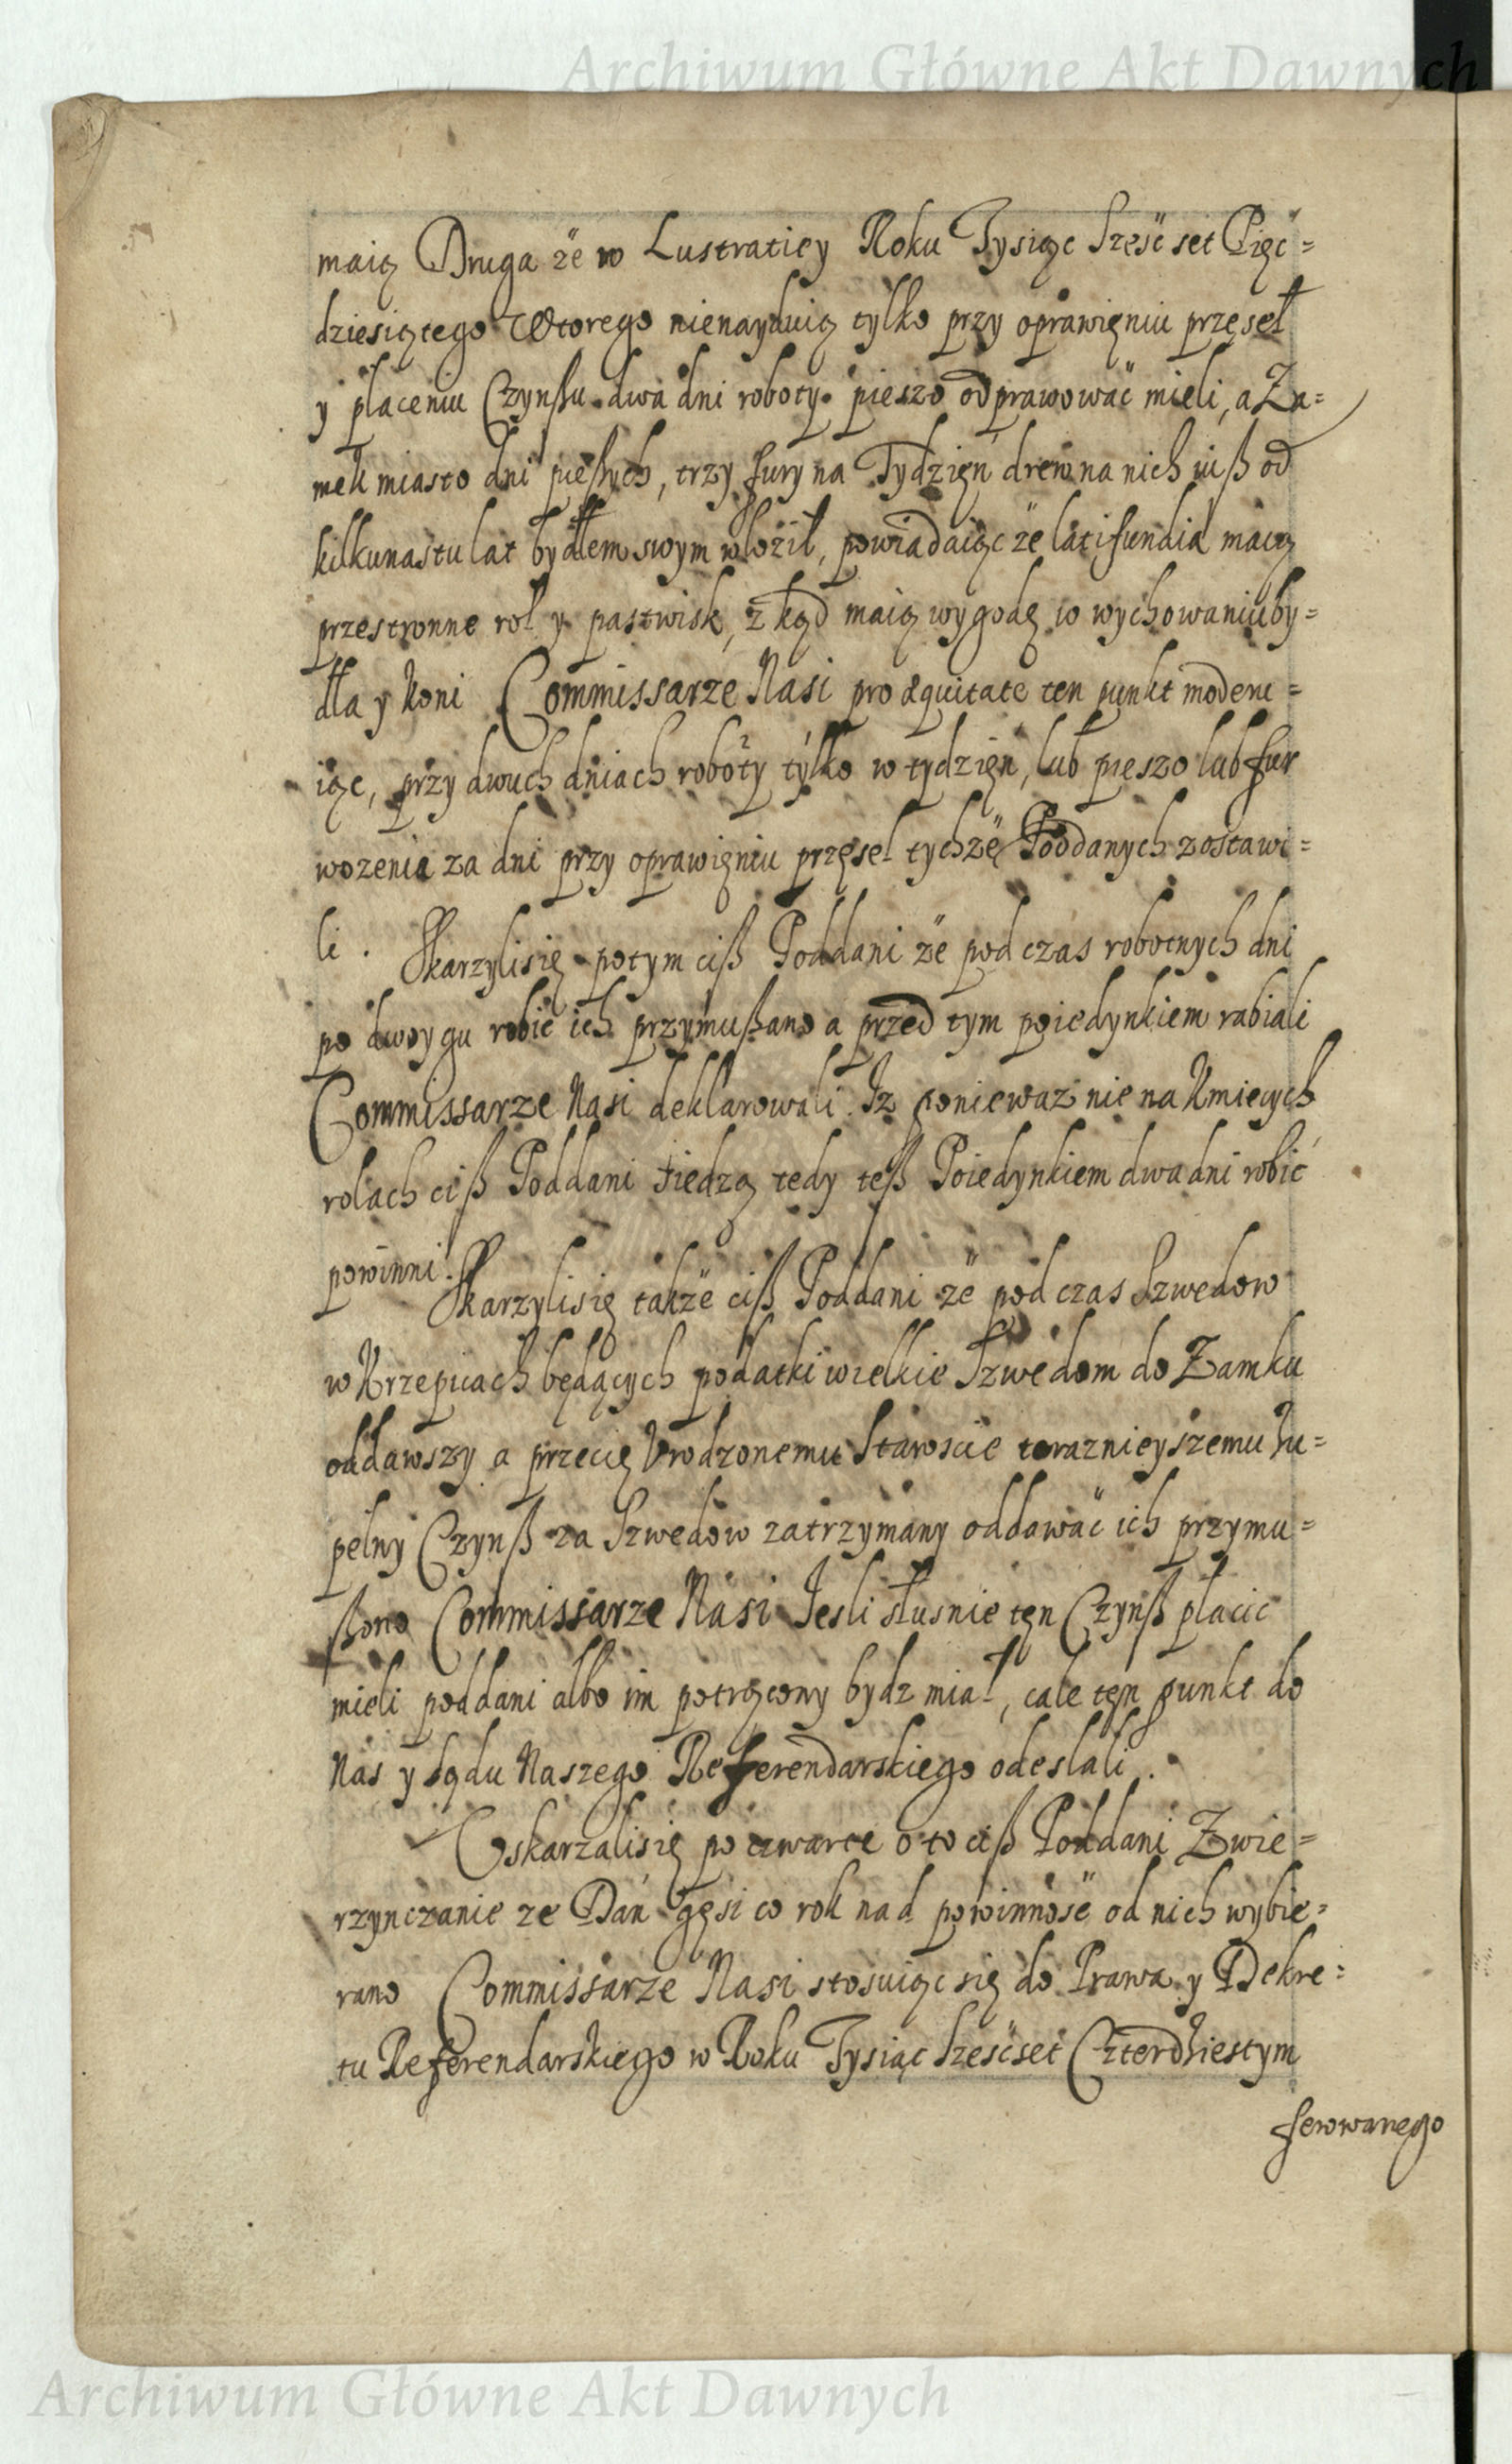 Archiwum Główne Akt Dawnych
maią Druga że w Lustratiey Roku Tysiąc Sześć set Pięć=
dziesiątego Wtorego nienayduią tylko przy oprawięniu przęseł
y płaceniu Czynßu dwa dni roboty pieszo odprawować mieli, a Za=
mek miasto dni pießych, trzy fury na Tydzięń drew na nich iuß od
kilkunastu lat bydłem swym włożił, powiadaiąc że latifundia maią
przestronne rol y pastwisk, z kąd maią wygodę w wychowaniu by=
dła y koni Commissarze Nasi pro æquitate ten punkt moderu=
iąc, przy dwuch dniach roboty tylko w tydzięń, lub pieszo lub fur
wozenia za dni przy oprawięniu przęseł tychże Poddanych zostawi=
li. Skarzyli się potym ciß Poddani że pod czas robotnych dni
po dwoygu robić ich przymußano a przed tym poiedynkiem rabiali
Commissarze Nasi deklarowali. Iz ponieważ nie na Kmiecych
rolach ciß Poddani siedzą tedy teß Poiedynkiem dwa dni robić
powinni. Skarzyli się także ciß Poddani że pod czas Szwedow
w Krzepicach będących podatki wielkie Szwedom do Zamku
oddawszy a przecię Urodzonemu Staroscie teraznieyszemu Zu=
pełny Czynß za Szwedow zatrzymany oddawać ich przymu=
ßono Commissarze Nasi Jesli słusnie tęn Czynß płacić
mieli poddani albo im potrącony bydz miał, cale tęn punkt do
Nas y Sądu Naszego Referendarskiego odeslali.
Uskarzali się po czwarte o to ciß Poddani Zwie=
rzynczanie ze Dań gęsi co rok nad powinność od nich wybie=
rano Commissarze Nasi stosuiąc się do Prawa y Dekre=
tu Referendarskiego w Roku Tysiąc Sześćset Czterdziestym
ferowanego
Archiwum Główne Akt Dawnych